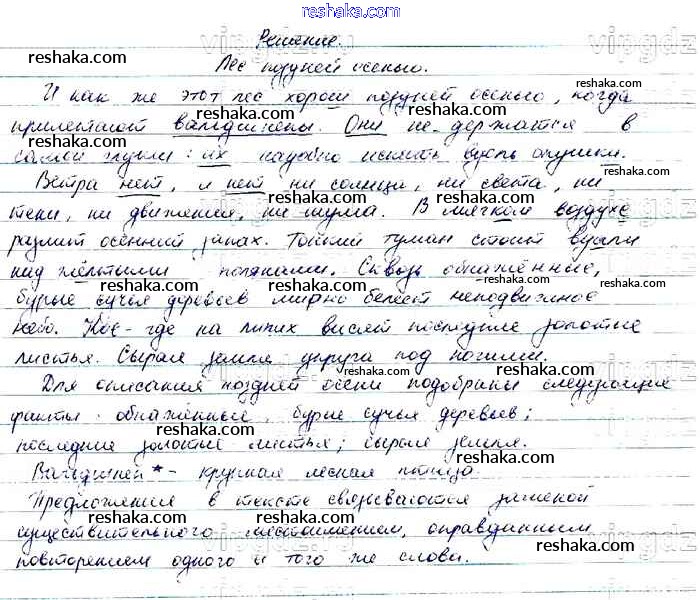 reshaka.com
Решение.
Лес поздней осенью.
И как же этот лес хорош поздней осенью, когда
прилетают вальдшнепы. Они не держатся в
самой глуши: их надобно искать вдоль опушки.
Ветра нет, и нет ни солнца, ни света, ни
тени, ни движения, ни шума. В мягком воздухе
разлит осенний запах. Тонкий туман стоит вдали
над жёлтыми полянами. Сквозь обнажённые,
бурые сучья деревьев мирно белеет неподвижное
небо. Кое-где на липах висят последние золотые
листья. Сырая земля упруга под ногами.
Для описания поздней осени подобраны следующие
факты: обнажённые, бурые сучья деревьев;
последние золотые листья; сырая земля.
Вальдшнеп* - крупная лесная птица.
Предложения в тексте связываются заменой
существительного местоимением, оправданным
повторением одного и того же слова.